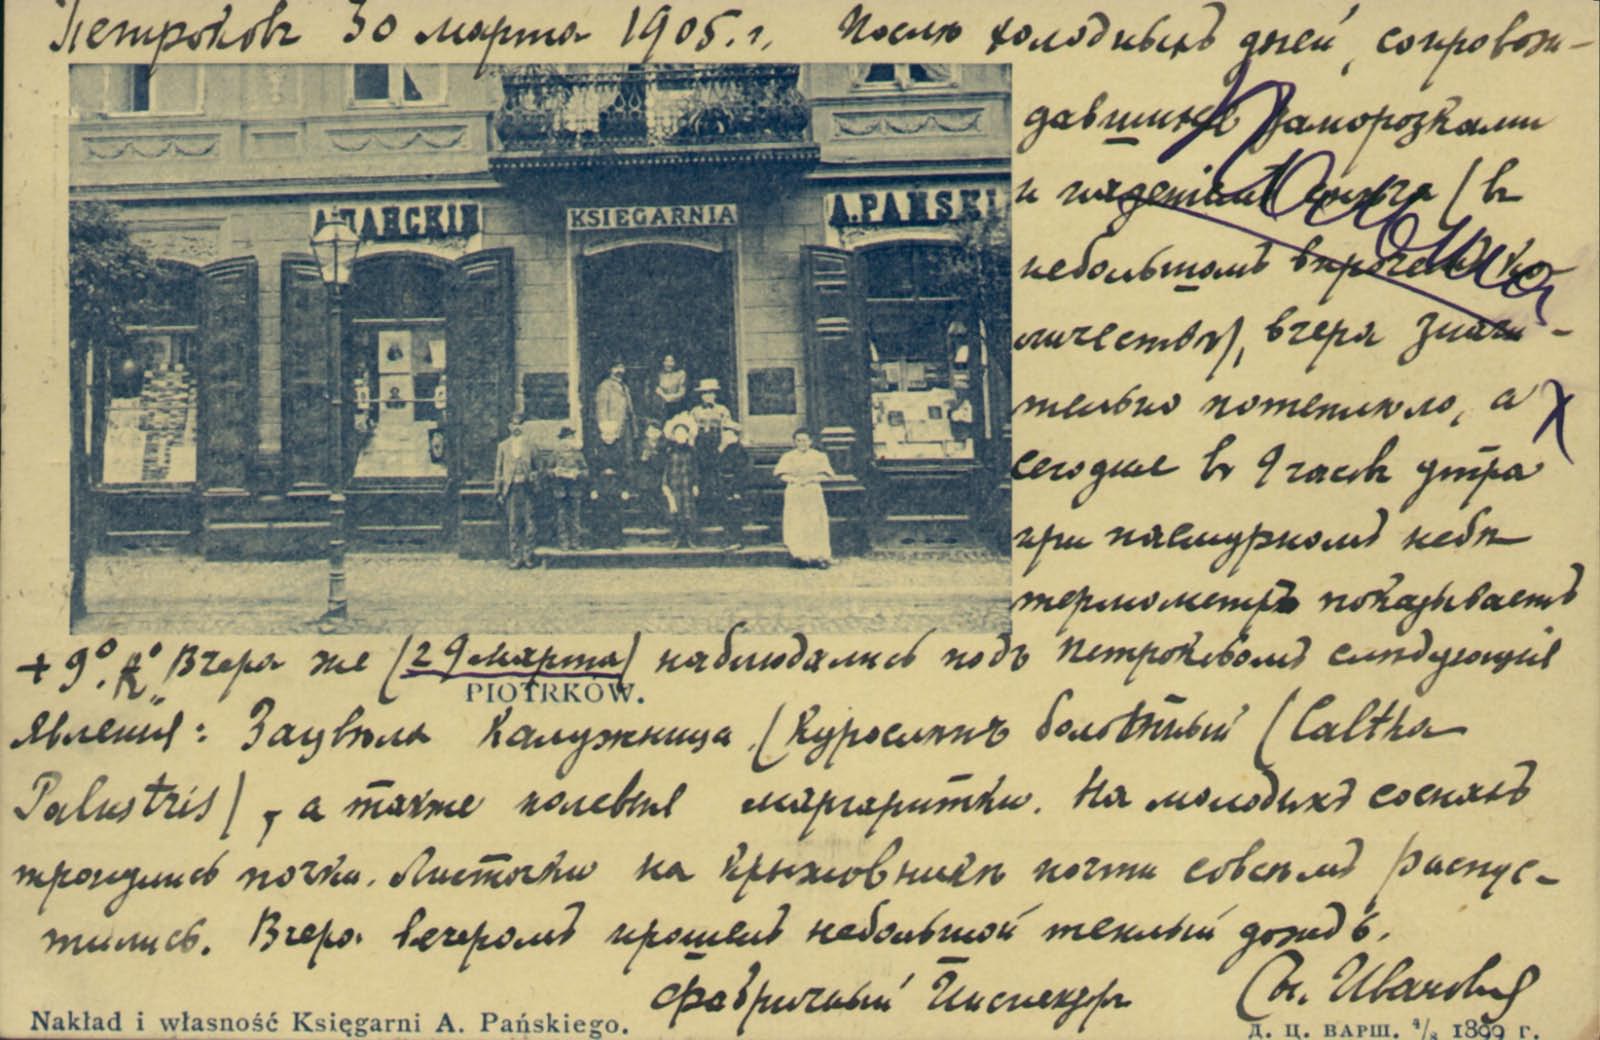 Петроковъ 30 марта 1905 г. Послѣ холодныхъ дней, сопровож-
давшихся заморозками
и паденіемъ снѣга (въ
небольшомъ впрочемъ ко-
личествѣ), вчера значи-
тельно потеплѣло, а
сегодня въ 9 часовъ утра
при пасмурномъ небѣ
термометръ показываетъ
+ 9° R° Вчера же (29 марта) наблюдались подъ Петроковомъ слѣдующія
явленія: Зацвѣла Калужница (Курослѣпъ болотный (Caltha
Palustris), а также полевыя маргаритки. На молодыхъ соснахъ
тронулись почки. Листочки на крыжовникѣ почти совсѣмъ распус-
тились. Вчера вечеромъ прошелъ небольшой теплый дождь.
Фабричный Инспекторъ Св. Ивановъ
А. ПАНСКІЙ
KSIĘGARNIA
A. PAŃSKI
PIOTRKÓW.
Nakład i własność Księgarni A. Pańskiego.
Д. Ц. ВАРШ. 4/8 1899 г.